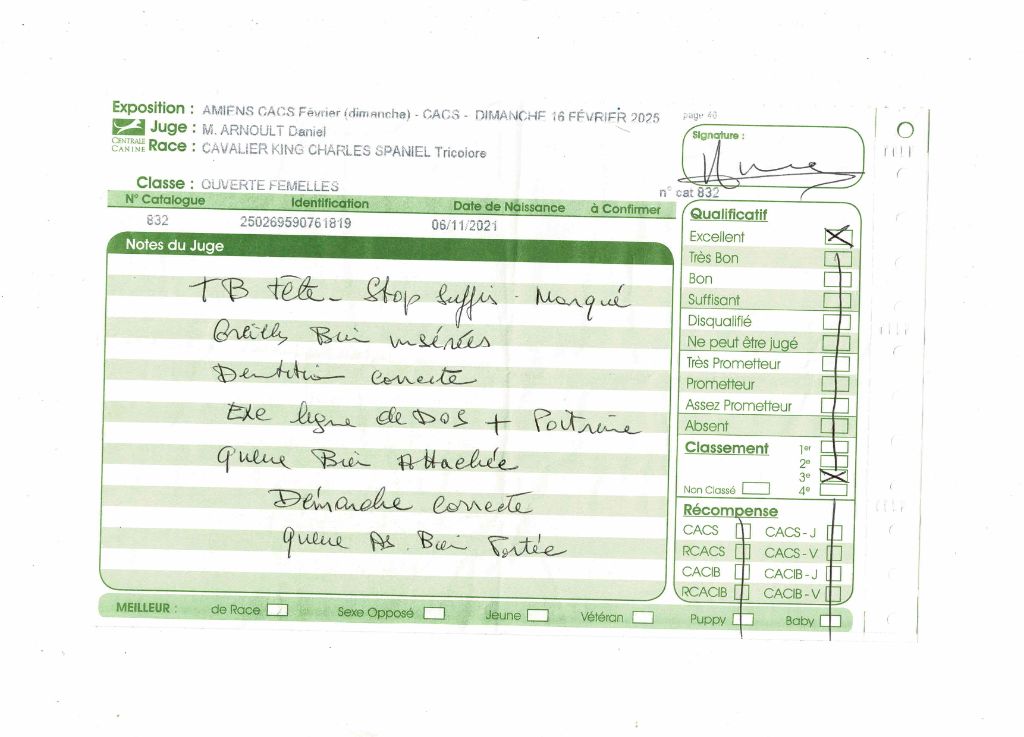 Exposition : AMIENS CACS Février (dimanche) - CACS - DIMANCHE 16 FÉVRIER 2025
page 40
CENTRALE CANINE
Juge : M. ARNOULT Daniel
Race : CAVALIER KING CHARLES SPANIEL Tricolore
Signature :
Classe : OUVERTE FEMELLES
n° cat 832
N° Catalogue Identification Date de Naissance à Confirmer
832 250269590761819 06/11/2021
Notes du Juge
TB Tête - Stop suffis. Marqué
Oreilles Bien insérées
Dentition correcte
Exe ligne de DOS + Poitrine
Queue Bien Attachée
Démarche correcte
Queue AS. Bien Portée
Qualificatif
Excellent
Très Bon
Bon
Suffisant
Disqualifié
Ne peut être jugé
Très Prometteur
Prometteur
Assez Prometteur
Absent
Classement 1er
2e
3e
Non Classé 4e
Récompense
CACS CACS - J
RCACS CACS - V
CACIB CACIB - J
RCACIB CACIB - V
MEILLEUR : de Race Sexe Opposé Jeune Vétéran Puppy Baby